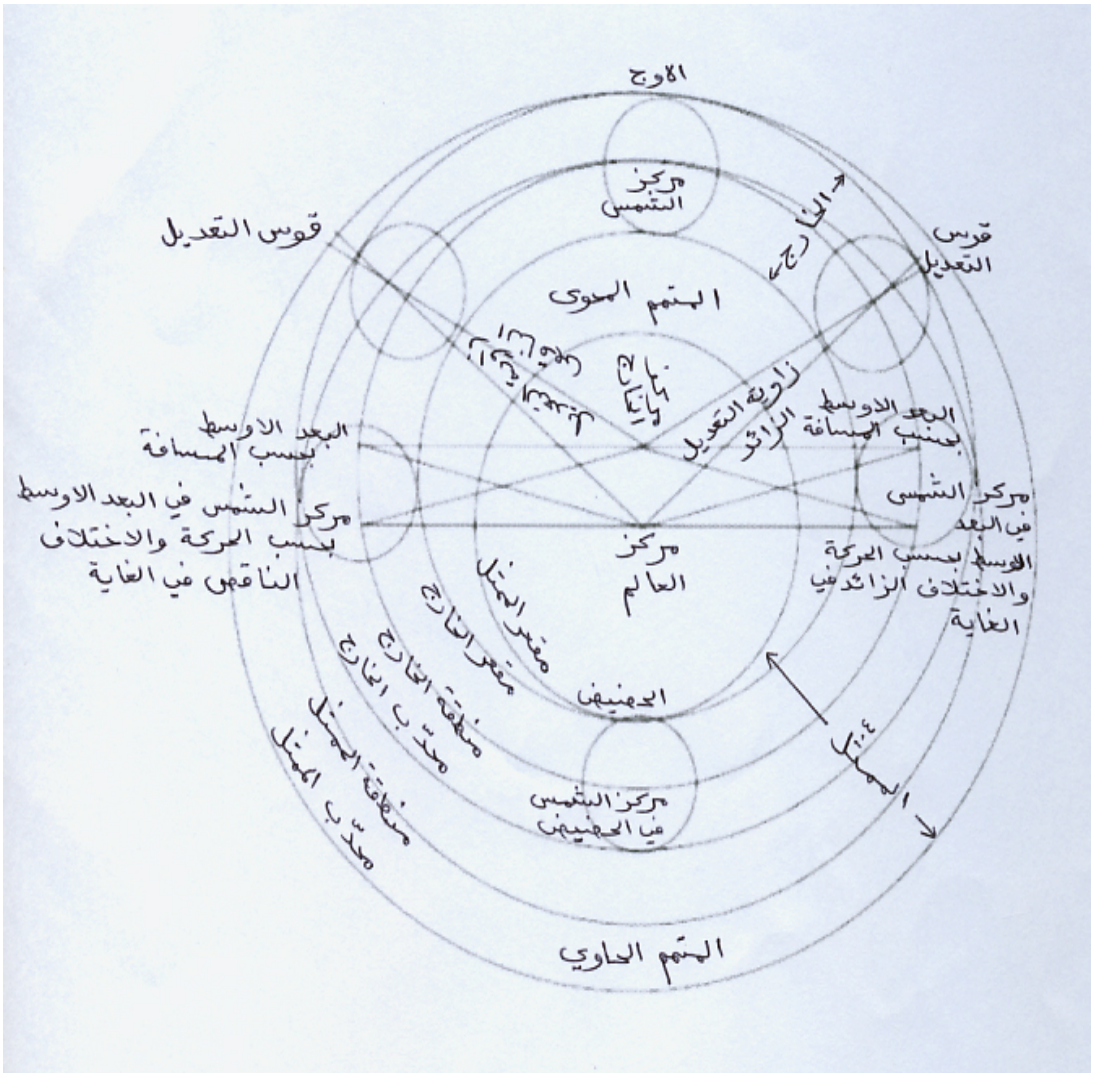 الاوج
مركز
الشمس
الخارج
قوس
التعديل
قوس التعديل
المتمم المحوى
مركز
الخارج
زاوية التعديل
الناقص
زاوية التعديل
الزائد
البعد الاوسط
بحسب المسافة
البعد الاوسط
بحسب المسافة
مركز الشمس
في البعد
الاوسط بحسب الحركة
والاختلاف الزائد في
الغاية
مركز الشمس في البعد الاوسط
بحسب الحركة والاختلاف
الناقص في الغاية
مركز
العالم
مقعر الممثل
مقعر الخارج
منطقة الخارج
محدّب الخارج
منطقة الممثل
محدّب الممثل
الحضيض
مركز الشمس
في الحضيض
المتمم الحاوي